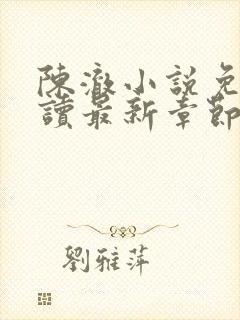 陳澈小說免
讀最新章節
劉雅萍